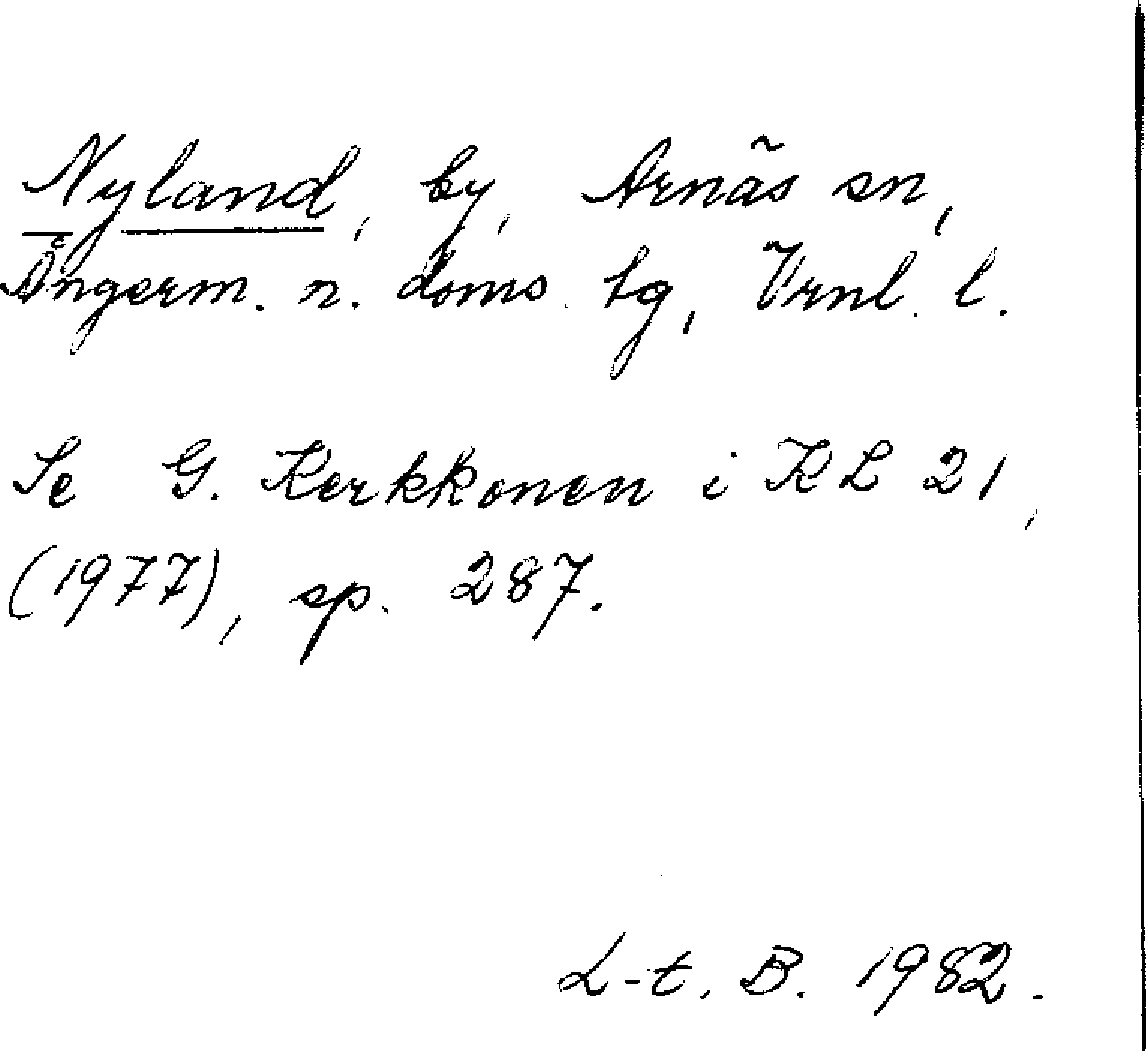 Nyland, by, Arnäs sn,
Ångerm. n. doms. tg, Vrnl. l.
Se G. Kerkkonen i KL 21,
(1977), sp. 287.
L-t. B. 1982.